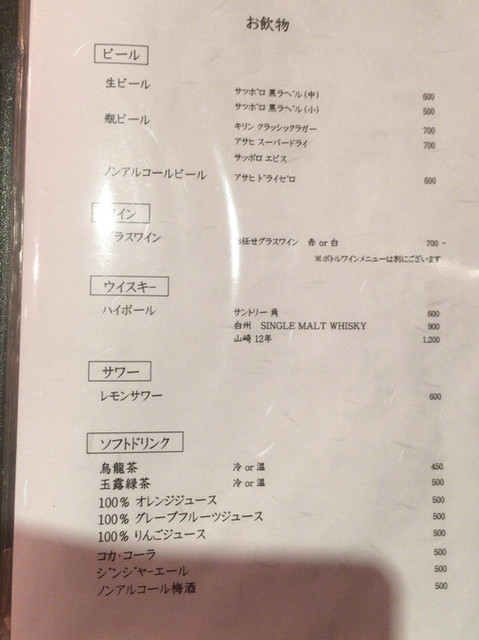 お飲物
ビール
生ビール
サッポロ 黒ラベル (中) 600
サッポロ 黒ラベル (小) 500
瓶ビール
キリン クラッシックラガー 700
アサヒ スーパードライ 700
サッポロ エビス
ノンアルコールビール アサヒ ドライゼロ 600
イン
ラスワイン 任せグラスワイン 赤 or 白 700 -
※ボトルワインメニューは別にございます
ウイスキー
ハイボール サントリー 角 600
白州 SINGLE MALT WHISKY 900
山崎 12年 1,200
サワー
レモンサワー 600
ソフトドリンク
烏龍茶 冷 or 温 450
玉露緑茶 冷 or 温 500
100% オレンジジュース 500
100% グレープフルーツジュース 500
100% りんごジュース 500
コカ・コーラ 500
ジンジャーエール 500
ノンアルコール梅酒 500